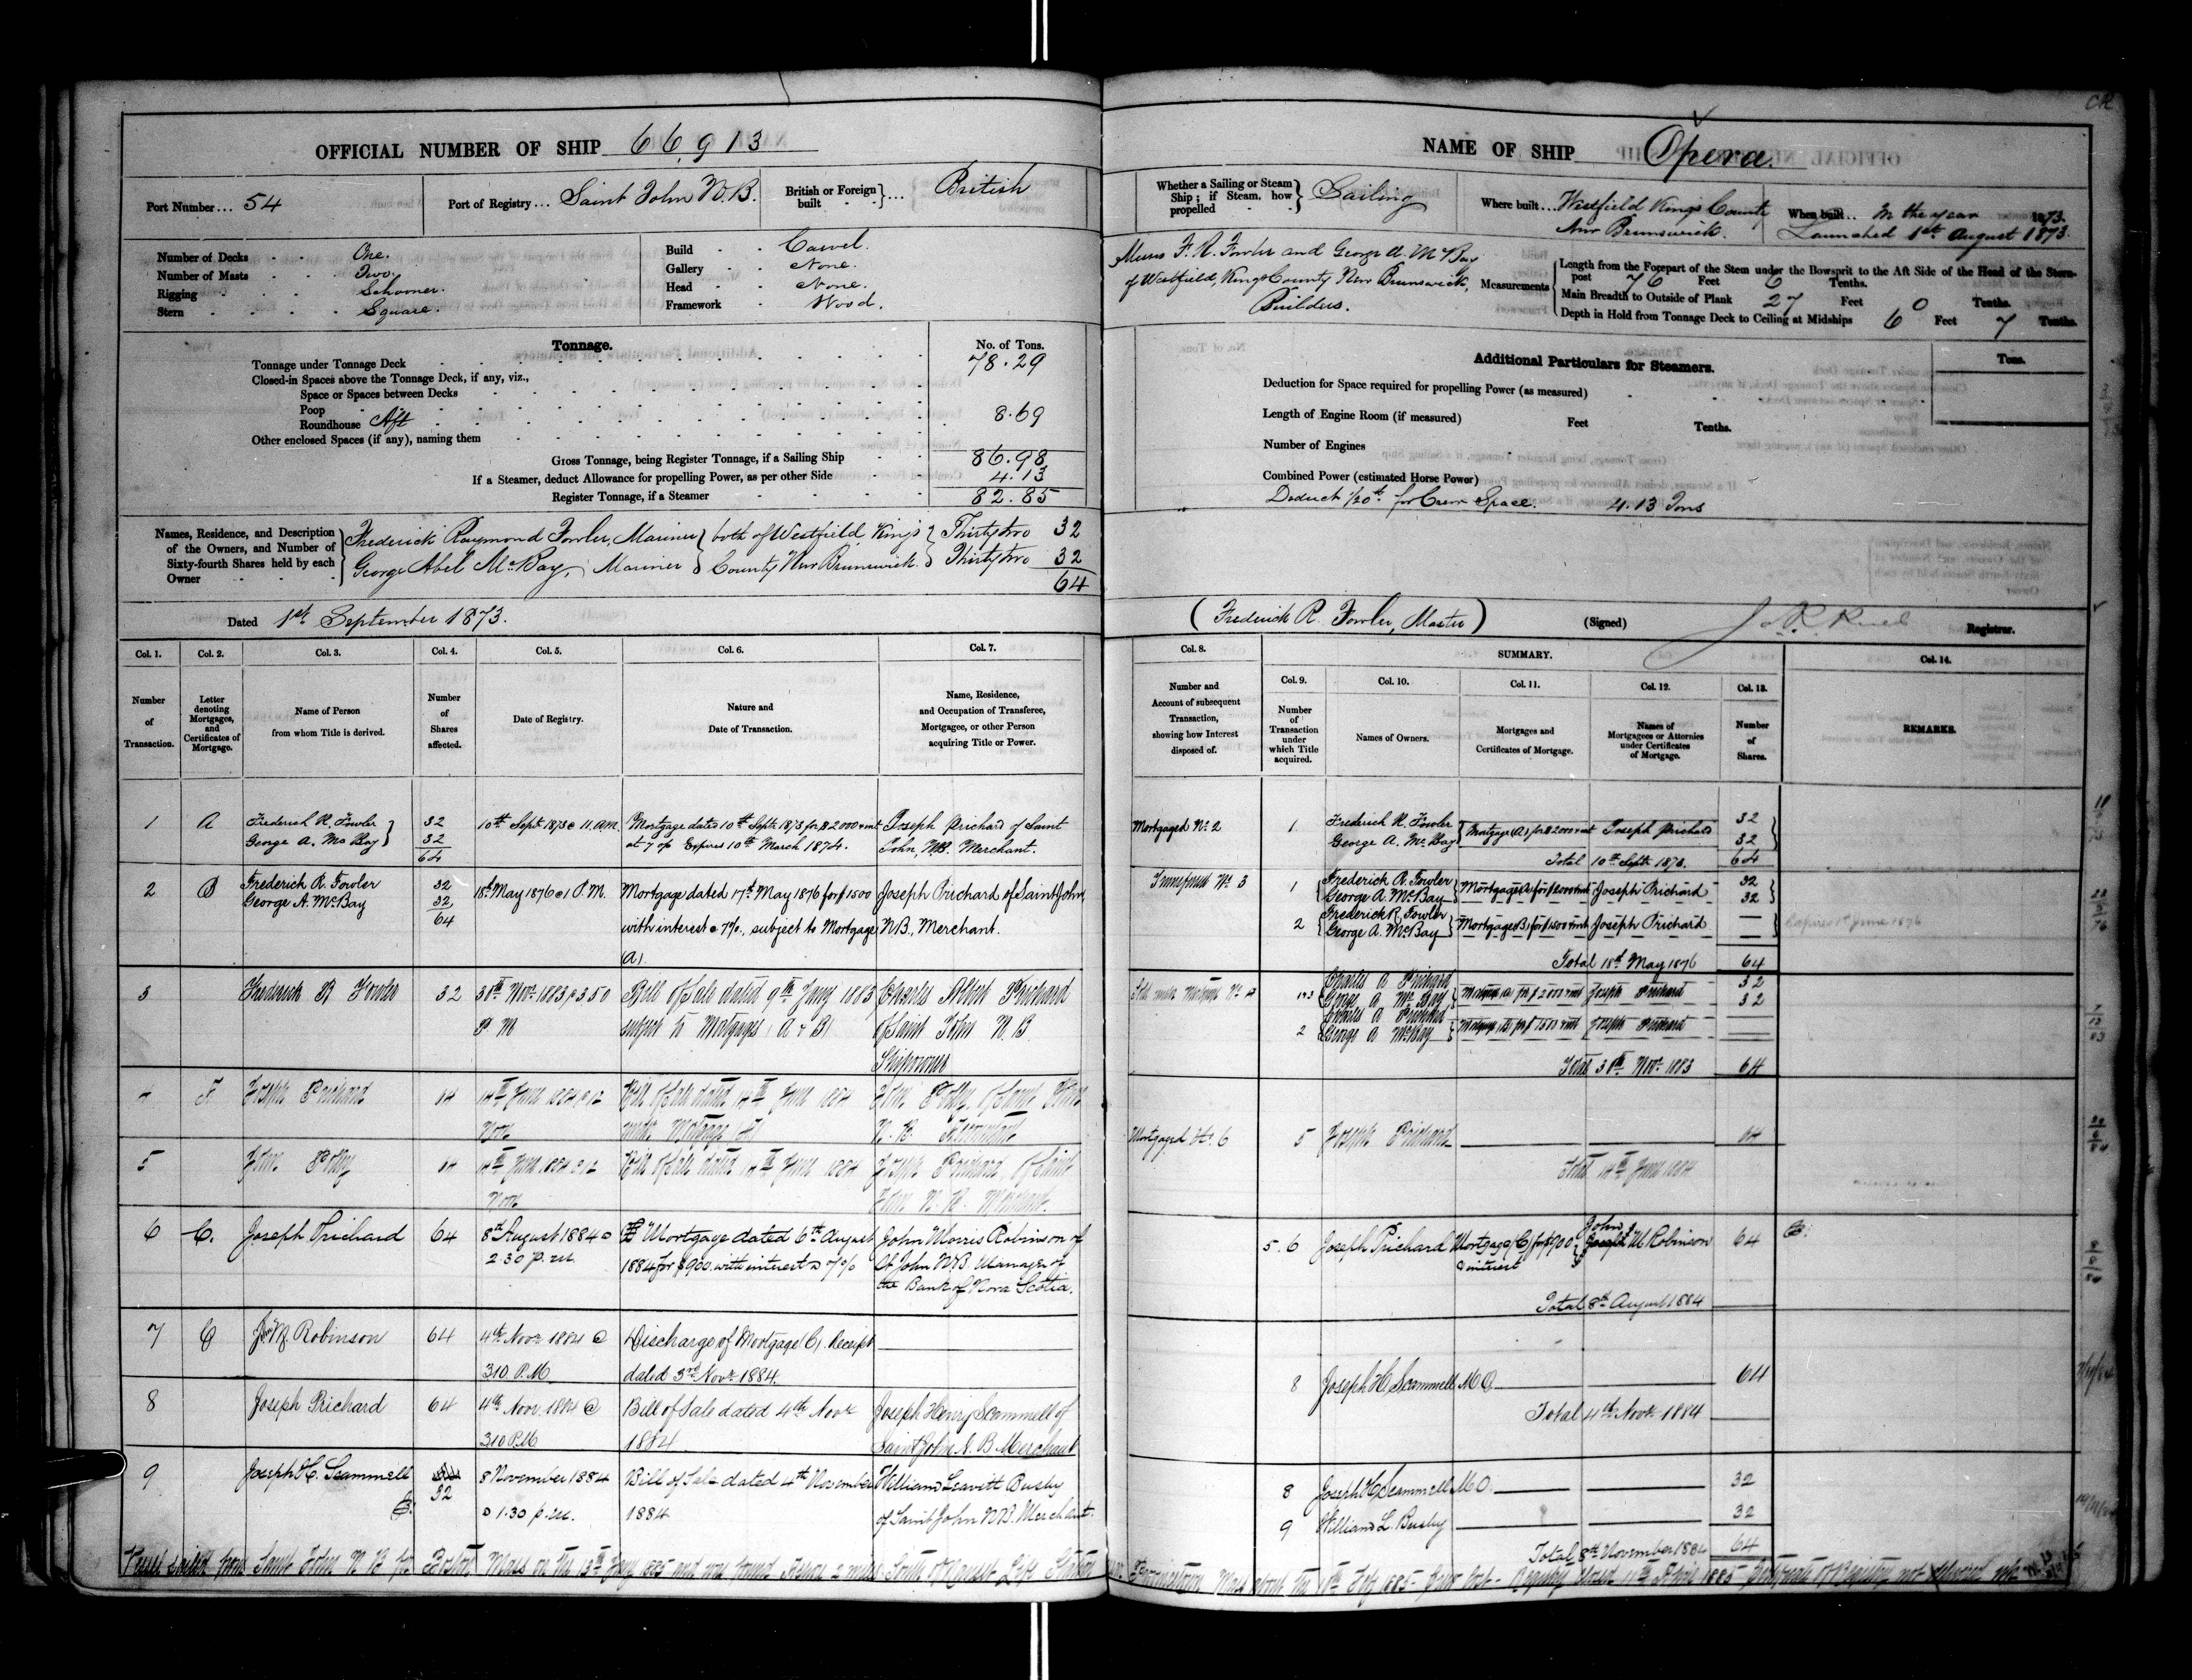 OFFICIAL NUMBER OF SHIP 66,913
Port Number... 54
Port of Registry... Saint John N.B.
British or Foreign built } ... British
Number of Decks One.
Number of Masts Two.
Rigging Schooner.
Stern Square.
Build Carvel.
Gallery None.
Head None.
Framework Wood.
Tonnage.
No. of Tons.
Tonnage under Tonnage Deck 78.29
Closed-in Spaces above the Tonnage Deck, if any, viz.,
Space or Spaces between Decks
Poop
Roundhouse Aft 8.69
Other enclosed Spaces (if any), naming them
Gross Tonnage, being Register Tonnage, if a Sailing Ship 86.98
If a Steamer, deduct Allowance for propelling Power, as per other Side 4.13
Register Tonnage, if a Steamer 82.85
Names, Residence, and Description of the Owners, and Number of Sixty-fourth Shares held by each Owner
Frederick Raymond Fowler, Mariner } both of Westfield, Kings } Thirty two 32
George Abel McBay, Mariner } County New Brunswick. } Thirty two 32
64
Dated 1st. September 1873.
Col. 1. Col. 2. Col. 3. Col. 4. Col. 5. Col. 6. Col. 7.
Number of Transaction.
Letter denoting Mortgages, and Certificates of Mortgage.
Name of Person from whom Title is derived.
Number of Shares affected.
Date of Registry.
Nature and Date of Transaction.
Name, Residence, and Occupation of Transferee, Mortgagee, or other Person acquiring Title or Power.
1 A Frederick R. Fowler 32 10th Sept 1873 @ 11. A.M. Mortgage dated 10th Septr. 1873 for $2000 + int Joseph Prichard of Saint
George A. McBay 32 at 7 % Expires 10th March 1874. John, N.B. Merchant.
64
2 B Frederick R. Fowler 32 18th May 1876 @ 1 P.M. Mortgage dated 17th May 1876 for $1500 Joseph Prichard of Saint John,
George A. McBay 32 with interest @ 7%, subject to Mortgage N.B., Merchant.
64 (A).
3 Frederick R Fowler 32 30th Novr. 1883 @ 3.50 Bill of Sale dated 9th Jany 1883 Charles Albert Prichard
P M subject to Mortgages (A & B) of Saint John N. B
Shipowner
4 Joseph Prichard 64 14th June 1884 @ 12 Bill of Sale dated 14th June 1884 John Polly, of Saint John
Noon under Mortgage (A) N. B.
5 John Polly 64 14th June 1884 @ 12 Bill of Sale dated 14th June 1884 Joseph Prichard, of Saint
Noon John N. B. Merchant.
6 C. Joseph Prichard 64 8th August 1884 @ Mortgage dated 6th August John Morris Robinson of
2.30 p.m. 1884 for $900. with interest @ 7% St John N.B. Manager of
the Bank of Nova Scotia.
7 C Jno M Robinson 64 4th Novr. 1884 @ Discharge of Mortgage (C). Receipt
310. P.M. dated 3rd Novr. 1884.
8 Joseph Prichard 64 4th Novr. 1884 @ Bill of Sale dated 4th Novr. Joseph Henry Scammell of
310 P.M 1884. Saint John N. B Merchant
9 Joseph H. Scammell 32 8 November 1884 Bill of Sale dated 4th November William Leavitt Busby
@ 1.30 p.m. 1884 of Saint John N.B. Merchant.
Vessel sailed from Saint John N B for Boston Mass on the 13th Jany 1885 and was found Ashore 2 miles South of Life Station
NAME OF SHIP Opera.
Whether a Sailing or Steam Ship; if Steam, how propelled } Sailing
Where built... Westfield Kings County New Brunswick.
When built... In the year 1873.
Launched 1st. August 1873.
Messrs F. R. Fowler and George A. McBay
of Westfield, Kings County New Brunswick,
Builders.
Measurements
Length from the Forepart of the Stem under the Bowsprit to the Aft Side of the Head of the Stern-post 76 Feet 6 Tenths.
Main Breadth to Outside of Plank 27 Feet 0 Tenths.
Depth in Hold from Tonnage Deck to Ceiling at Midships 6 Feet 7 Tenths.
Additional Particulars for Steamers.
Tons.
Deduction for Space required for propelling Power (as measured)
Length of Engine Room (if measured) Feet Tenths.
Number of Engines
Combined Power (estimated Horse Power)
Deduct 1/20th for Crew Space. 4.13 Tons
(Frederick R. Fowler, Master) (Signed) Registrar.
Col. 8. SUMMARY. Col. 14.
Col. 9. Col. 10. Col. 11. Col. 12. Col. 13.
Number and Account of subsequent Transaction, showing how Interest disposed of.
Number of Transaction under which Title acquired.
Names of Owners.
Mortgages and Certificates of Mortgage.
Names of Mortgagees or Attornies under Certificates of Mortgage.
Number of Shares.
REMARKS.
Mortgaged No. 2 1. Frederick R. Fowler 32
George A. McBay } Mortgage (A) for $2000 + int Joseph Prichard 32
Total 10th Septr. 1873. 64
Transferred No. 3 1 Frederick R. Fowler 32
George A. McBay Mortgage (A) for $2000 + int Joseph Prichard 32
2 Frederick R. Fowler
George A. McBay Mortgage (B) for $1500 + int Joseph Prichard
Expires 1st June 1876
Total 18th May 1876 64
Sold under Mortgage No. 4 1+3 Charles A Prichard 32
George A McBay Mortgage (A) for $2000 + int Joseph Prichard 32
2 Charles A Prichard
George A McBay Mortgage (B) for $1500 + int Joseph Prichard
Total 30th Novr. 1883 64
Mortgaged No. 6 5 Joseph Prichard 64
Total 14th June 1884
5.6 Joseph Prichard Mortgage (C) for $900 & interest John M. Robinson 64
Total 8th August 1884
8 Joseph H. Scammell M O 64
Total 4th Novr. 1884
8 Joseph H Scammell M O. 32
9 William L. Busby 32
Total 8th November 1884 64
Provincetown Mass about the 10th Feby 1885- Registry closed 11th April 1885 Certificate of Registry not delivered up